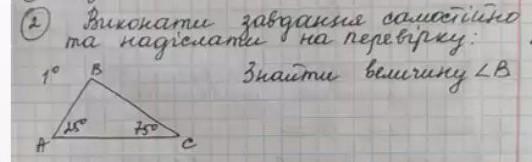 2 Виконати завдання самостійно
та надіслати на перевірку:
1° B Знайти величину ∠B
25° 75°
A C